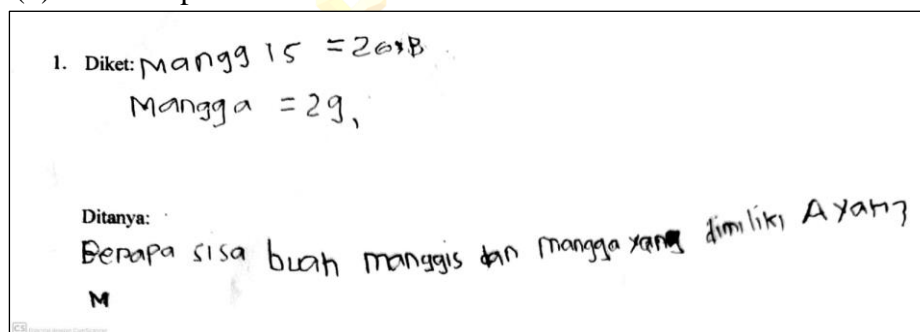 1. Diket: Manggis =
Mangga = 29,
Ditanya:
Berapa sisa buah manggis dan mangga yang dimiliki Ayah?
M
CS